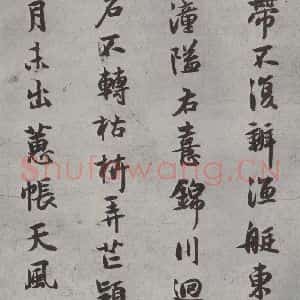 帶不復辨漁艇東
潼隘右憙錦川迴
不轉枯弄芒穎
月未出蕙帳天風
Shufawang.CN